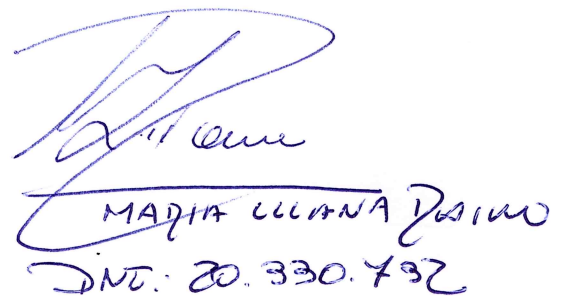 MARIA LILIANA DAINO
DNI: 20.330.732